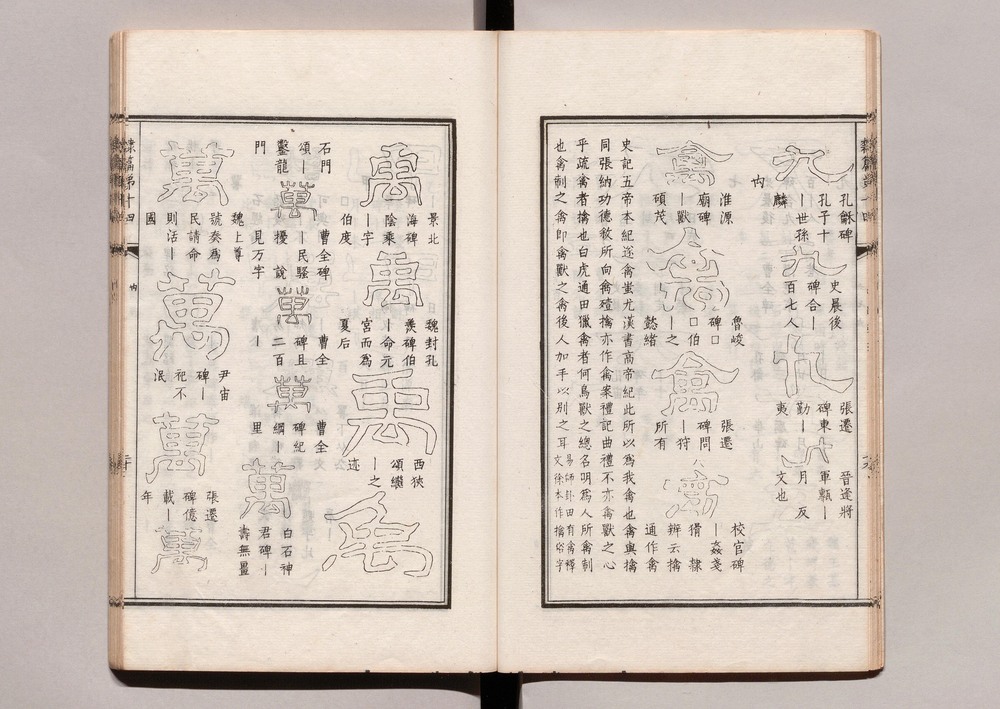 九
孔龢碑
孔子十
｜世孫
麟
九
史晨後
碑合｜
百七人
九
張遷
碑東
勤｜月
夷
九
晉逢將
軍甎｜
月反
文也
禸
禽
淮源
廟碑
｜獸
碩茂
禽
魯峻
碑口
口伯
｜之
懿緒
禽
張遷
碑問
｜狩
所有
禽
校官碑
｜姦戔
猾 隸
辨云擒
通作禽
史記五帝本紀遂禽蚩尤漢書高帝紀此所以為我禽也禽與擒
同張納功德敘所向禽殪擒亦作禽案禮記曲禮不亦禽獸之心
乎疏禽者擒也白虎通田獵禽者何鳥獸之總名明為人所禽制
也禽制之禽即禽獸之禽後人加手以別之耳
易師卦田有禽釋
文徐本作擒俗字
禹
｜景北
海碑
陰乘
｜字
伯度
禹
魏封孔
羨碑伯
｜命元
宮而為
夏后
禹
西狹
頌繼
｜之
迹
禹
石門
頌｜
鑿龍
門
萬
曹全碑
｜民騷
擾 說
見万字
萬
曹全
碑且
二百
｜
萬
曹全
碑紀
綱｜
里
萬
白石神
君碑｜
壽無畺
萬
魏上尊
號奏為
民請命
則活｜
國
萬
尹宙
碑｜
祀不
泯
萬
張遷
碑億
載｜
年
萬
隸篇第十四